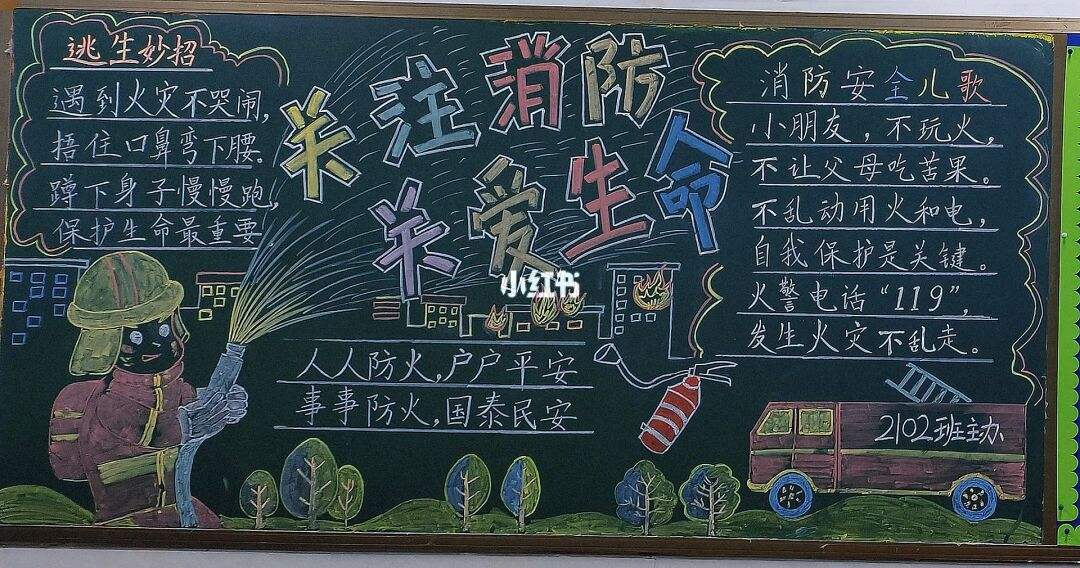 逃生妙招
遇到火灾不哭闹,
捂住口鼻弯下腰。
蹲下身子慢慢跑,
保护生命最重要
关注消防
关爱生命
小红书
人人防火,户户平安
事事防火,国泰民安
消防安全儿歌
小朋友,不玩火,
不让父母吃苦果。
不乱动用火和电,
自我保护是关键。
火警电话“119”,
发生火灾不乱走。
2102班主办